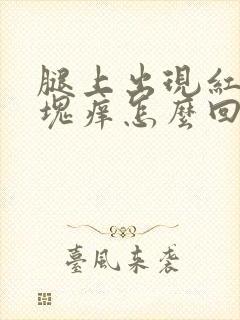 腿上出現紅
塊癢怎麼回
臺風來襲